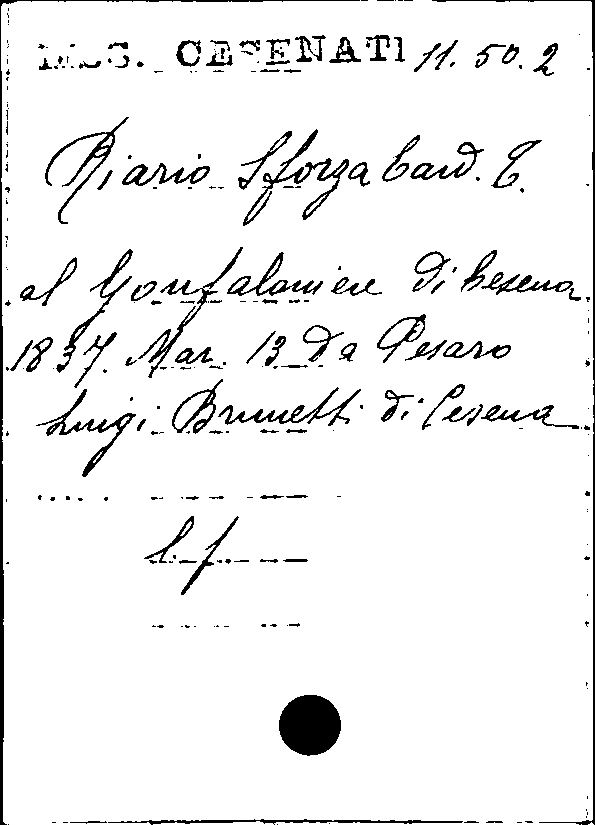 MSS. CESENATI 11. 50. 2
Riario Sforza Card. T.
al Gonfaloniere di Cesena
1837. Mar. 13 Da Pesaro
Luigi Brunetti di Cesena
l. f.